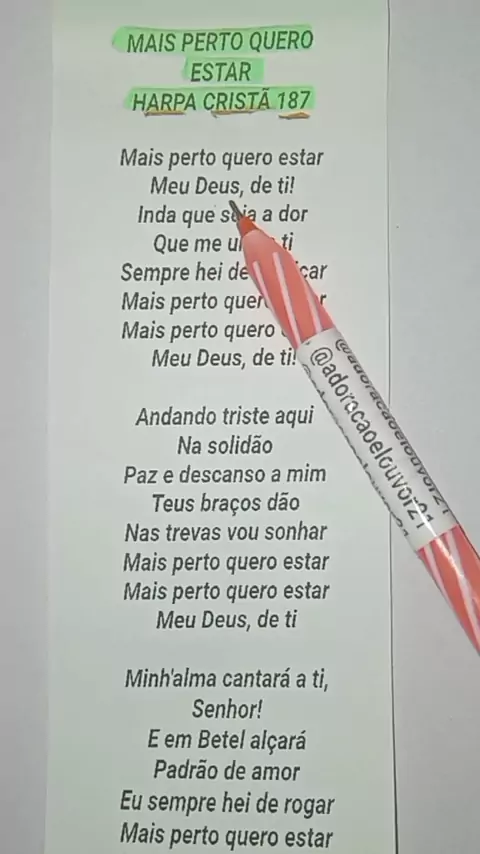 MAIS PERTO QUERO
ESTAR
HARPA CRISTÃ 187
Mais perto quero estar
Meu Deus, de ti!
Inda que seja a dor
Que me ti
Sempre hei de
Mais perto
Mais perto quero
Meu Deus, de ti!
Andando triste aqui
Na solidão
Paz e descanso a mim
Teus braços dão
Nas trevas vou sonhar
Mais perto quero estar
Mais perto quero estar
Meu Deus, de ti
Minh'alma cantará a ti,
Senhor!
E em Betel alçará
Padrão de amor
Eu sempre hei de rogar
Mais perto quero estar
@adoracaoelouvor21